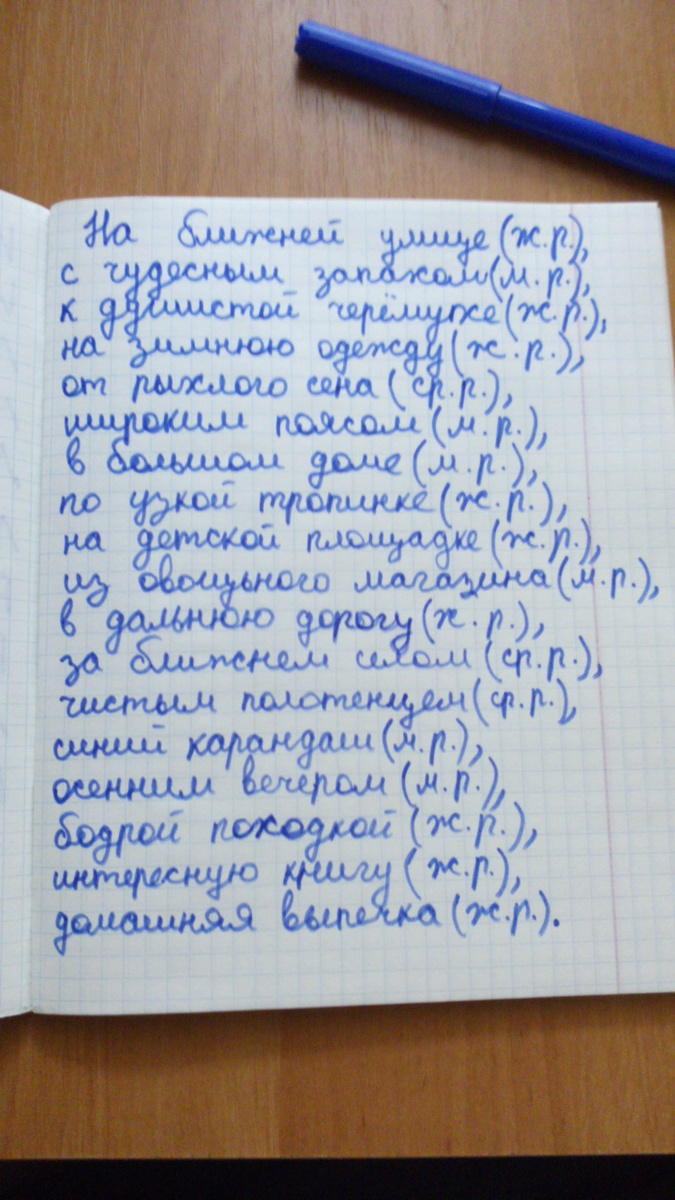 На ближней улице (ж.р.),
с чудесным запахом (м.р.),
к душистой черёмухе (ж.р.),
на зимнюю одежду (ж.р.),
от рыхлого сена (ср.р.),
широким поясом (м.р.),
в большом доме (м.р.),
по узкой тропинке (ж.р.),
на детской площадке (ж.р.),
из овощьного магазина (м.р.),
в дальнюю дорогу (ж.р.),
за ближнем селом (ср.р.),
чистым полотенцем (ср.р.),
синий карандаш (м.р.),
осенним вечером (м.р.),
бодрой походкой (ж.р.),
интересную книгу (ж.р.),
домашняя выпечка (ж.р.).